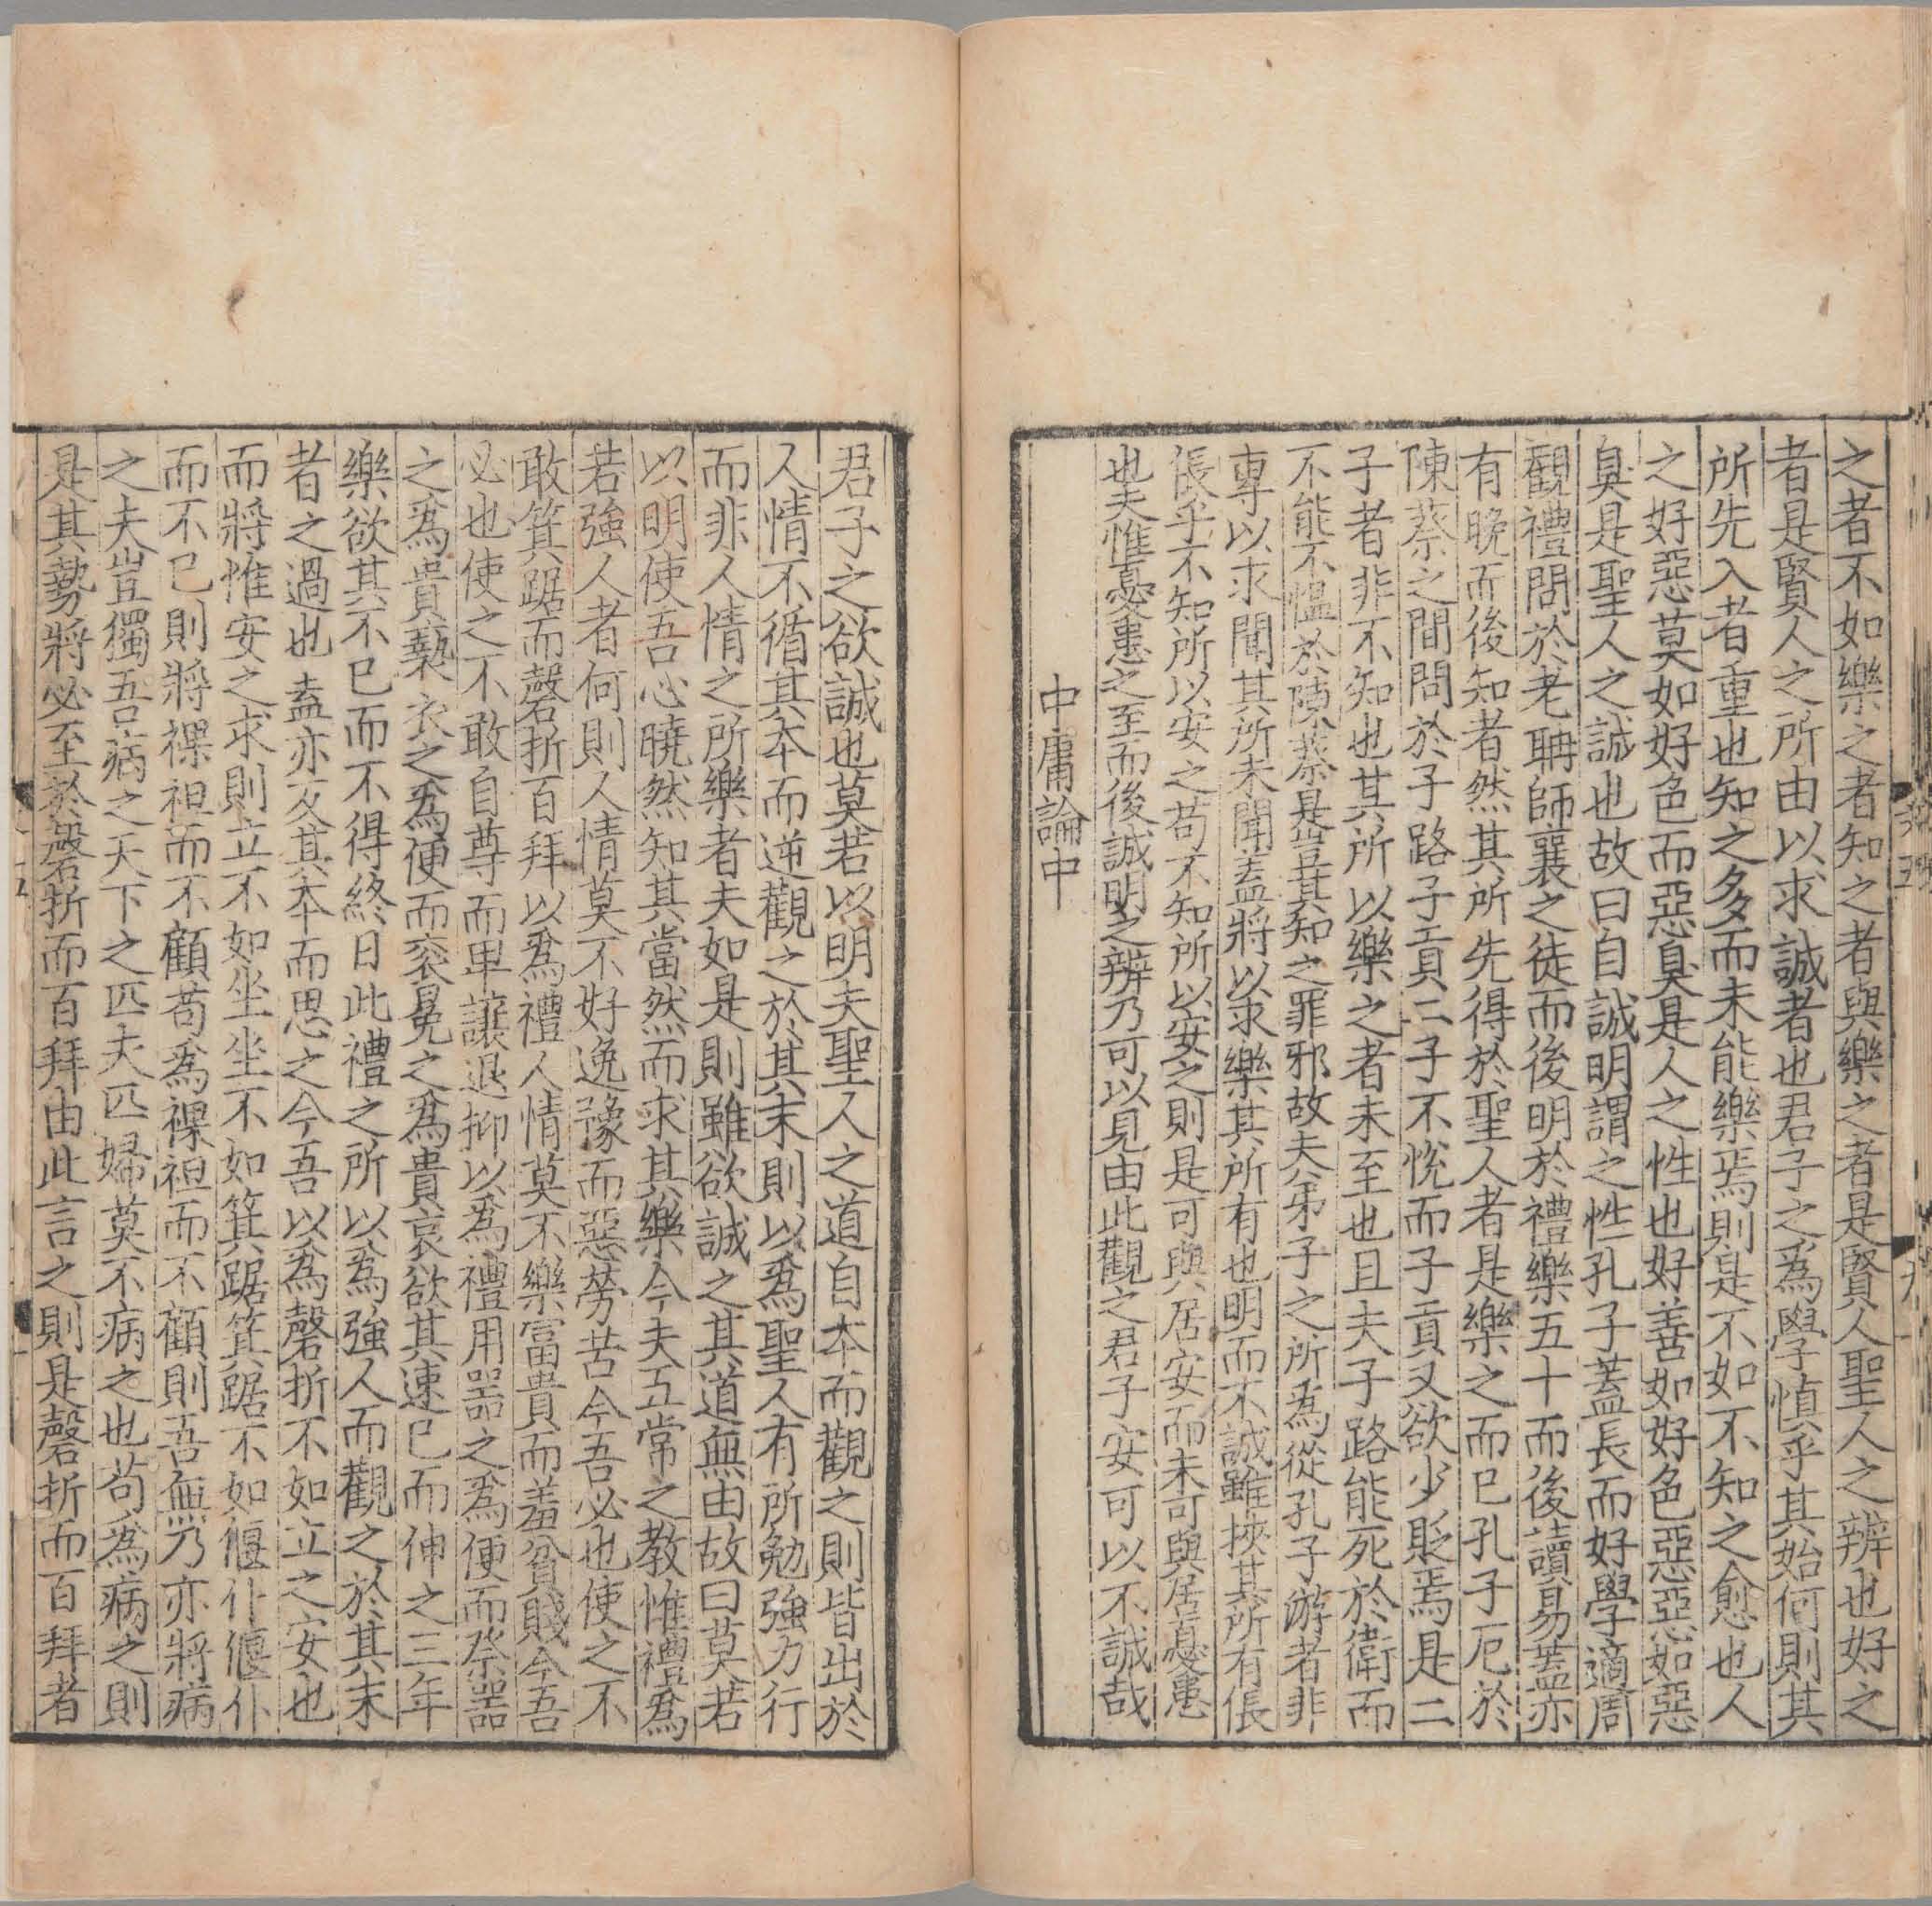 之者不如樂之者知之者與樂之者是賢人聖人之辨也好之
者是賢人之所由以求誠者也君子之爲學慎乎其始何則其
所先入者重也知之多而未能樂焉則是不如不知之愈也人
之好惡莫如好色而惡臭是人之性也好善如好色惡惡如惡
臭是聖人之誠也故曰自誠明謂之性孔子蓋長而好學適周
觀禮問於老聃師襄之徒而後明於禮樂五十而後讀易蓋亦
有晚而後知者然其所先得於聖人者是樂之而已孔子厄於
陳蔡之間問於子路子貢二子不恱而子貢又欲少貶焉是二
子者非不知也其所以樂之者未至也且夫子路能死於衛而
不能不慍於陳蔡是豈其知之罪邪故夫弟子之所爲從孔子游者非
專以求聞其所未聞盖將以求樂其所有也明而不誠雖挾其所有倀
倀乎不知所以安之苟不知所以安之則是可與居安而未可與居憂患
也夫惟憂患之至而後誠明之辨乃可以見由此觀之君子安可以不誠哉
中庸論中
君子之欲誠也莫若以明夫聖人之道自本而觀之則皆出於
人情不循其本而逆觀之於其末則以爲聖人有所勉強力行
而非人情之所樂者夫如是則雖欲誠之其道無由故曰莫若
以明使吾心曉然知其當然而求其樂今夫五常之教惟禮爲
若強人者何則人情莫不好逸豫而惡勞苦今吾必也使之不
敢箕踞而磬折百拜以爲禮人情莫不樂富貴而羞貧賤今吾
必也使之不敢自尊而卑讓退抑以爲禮用器之爲便而祭器
之爲貴褻衣之爲便而衮冕之爲貴哀欲其速已而伸之三年
樂欲其不已而不得終日此禮之所以爲強人而觀之於其末
者之過也盍亦反其本而思之今吾以爲磬折不如立之安也
而將惟安之求則立不如坐坐不如箕踞箕踞不如偃仆偃仆
而不已則將裸袒而不顧苟爲裸袒而不顧則吾無乃亦將病
之夫豈獨吾病之天下之匹夫匹婦莫不病之也苟爲病之則
是其勢將必至於磬折而百拜由此言之則是磬折而百拜者